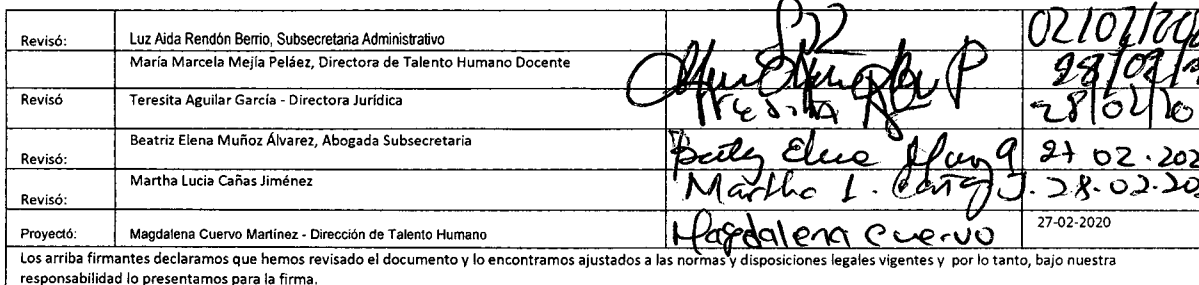 Revisó: Luz Aida Rendón Berrio, Subsecretaria Administrativo
María Marcela Mejía Peláez, Directora de Talento Humano Docente
Revisó Teresita Aguilar García - Directora Jurídica 28/02/20
Revisó: Beatriz Elena Muñoz Álvarez, Abogada Subsecretaria
Revisó: Martha Lucia Cañas Jiménez Martha L. Cañas J. 28.02.20
Proyectó: Magdalena Cuervo Martínez - Dirección de Talento Humano Magdalena Cuervo 27-02-2020
Los arriba firmantes declaramos que hemos revisado el documento y lo encontramos ajustados a las normas y disposiciones legales vigentes y por lo tanto, bajo nuestra
responsabilidad lo presentamos para la firma.